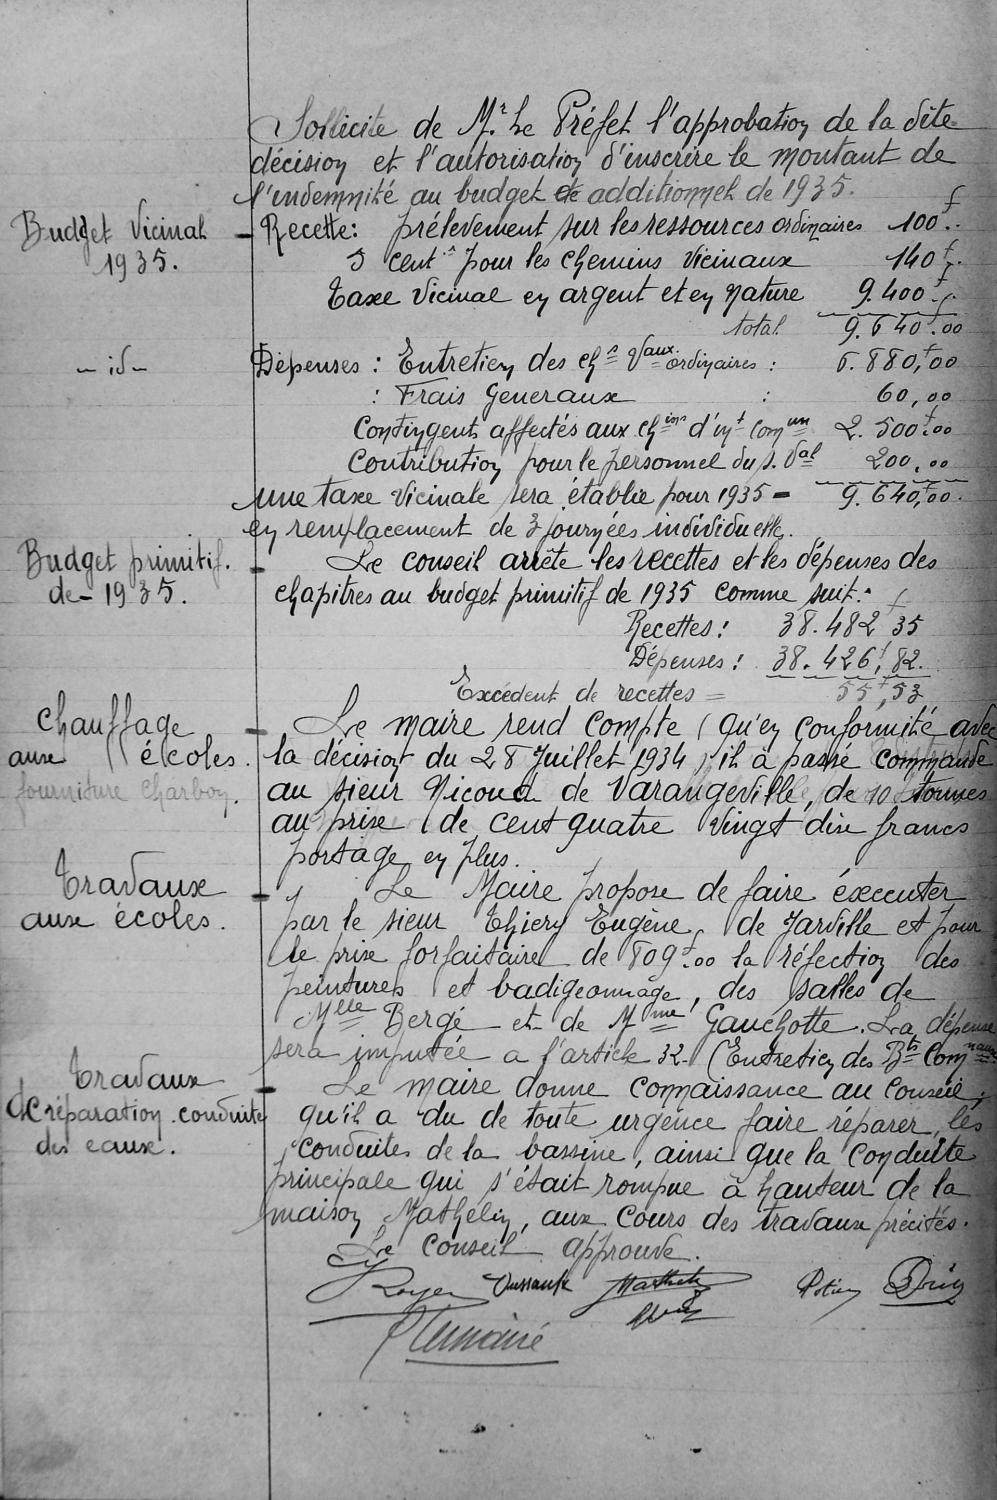 Sollicite de Mr Le Préfet l'approbation de la dite
décision et l'autorisation d'inscrire le montant de
l'indemnité au budget additionnel de 1935.
Budget Vicinal
1935.
Recette: prélevement sur les ressources ordinaires 100f..
5 cent.s pour les chemins vicinaux 140f.
Taxe vicinal en argent et en nature 9.400f.
total 9.640f.00
- id -
Dépenses : Entretien des chs Vaux ordinaires : 6.880f,00
: Frais Generaux : 60,00
Contingents affectés aux chins d'int Comun 2.500f.00
Contribution pour le personnel du s. Val 200,00
une taxe vicinale sera établie pour 1935 = 9.640f,00.
en remplacement de 3 journées individuelle.
Budget primitif.
de - 1935.
Le conseil arrête les recettes et les dépenses des
chapitres au budget primitif de 1935 comme suit :
Recettes : 38.482f 35
Dépenses : 38.426f,82.
Excédent de recettes = 55f,53
Chauffage
aux écoles.
fourniture charbon.
Le maire rend compte (qu'en conformité avec
la décision du 28 Juillet 1934) il à passé commande
au sieur Nicoud de Varangeville, de 10 tonnes
au prix de cent quatre vingt dix francs
portage en plus.
Travaux
aux écoles.
Le Maire propose de faire éxecuter
par le sieur Thiery Eugène, de Jarville et pour
le prix forfaitaire de 809f.00 la réfection des
peintures et badigeonnage, des salles de
Mlle Bergé et de Mme Gauchotte. La dépense
sera imputée a l'article 32. (Entretien des Bts Comnaux
Travaux
de réparation conduite
des eaux.
Le maire donne connaissance au conseil,
qu'il a du de toute urgence faire réparer, les
conduites de la bassine, ainsi que la conduite
principale qui s'était rompue à hauteur de la
maison Mathélin, aux cours des travaux précités.
Le conseil approuve.
Royer